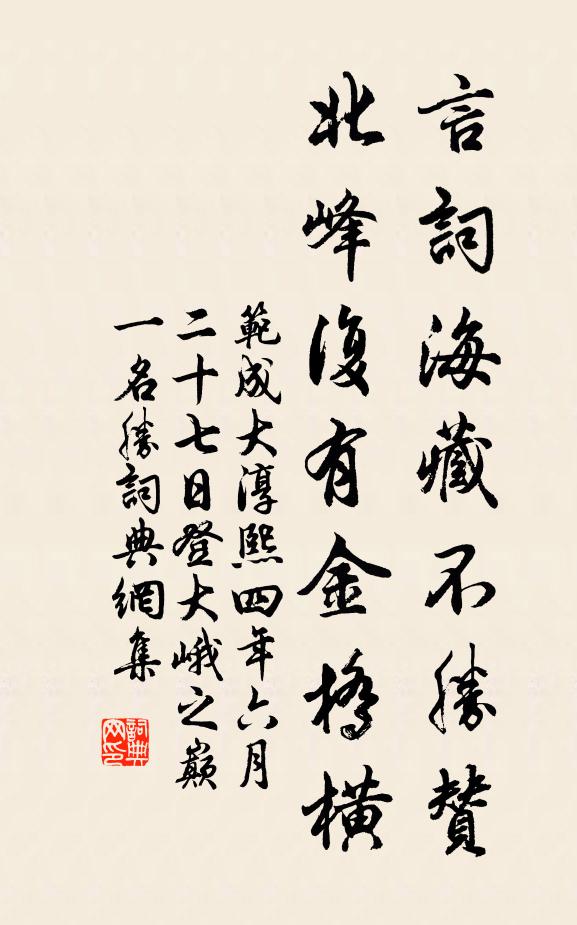 言詞海藏不勝贊
北峰復有金橋橫
範成大淳熙四年六月
二十七日登大峨之巔
一名勝詞典網集
詞典网印